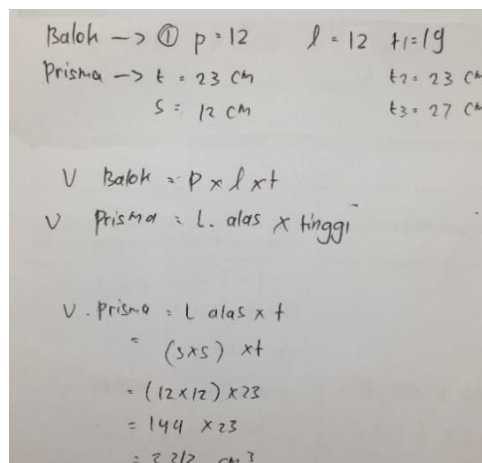 Balok —> ① p = 12 l = 12 t1 = 19
Prisma —> t = 23 cm t2 = 23 cm
s = 12 cm t3 = 27 cm
V Balok = p x l x t
V Prisma = L. alas x tinggi
V. prisma = L alas x t
= (s x s) x t
= (12 x 12) x 23
= 144 x 23
= 3312 cm3